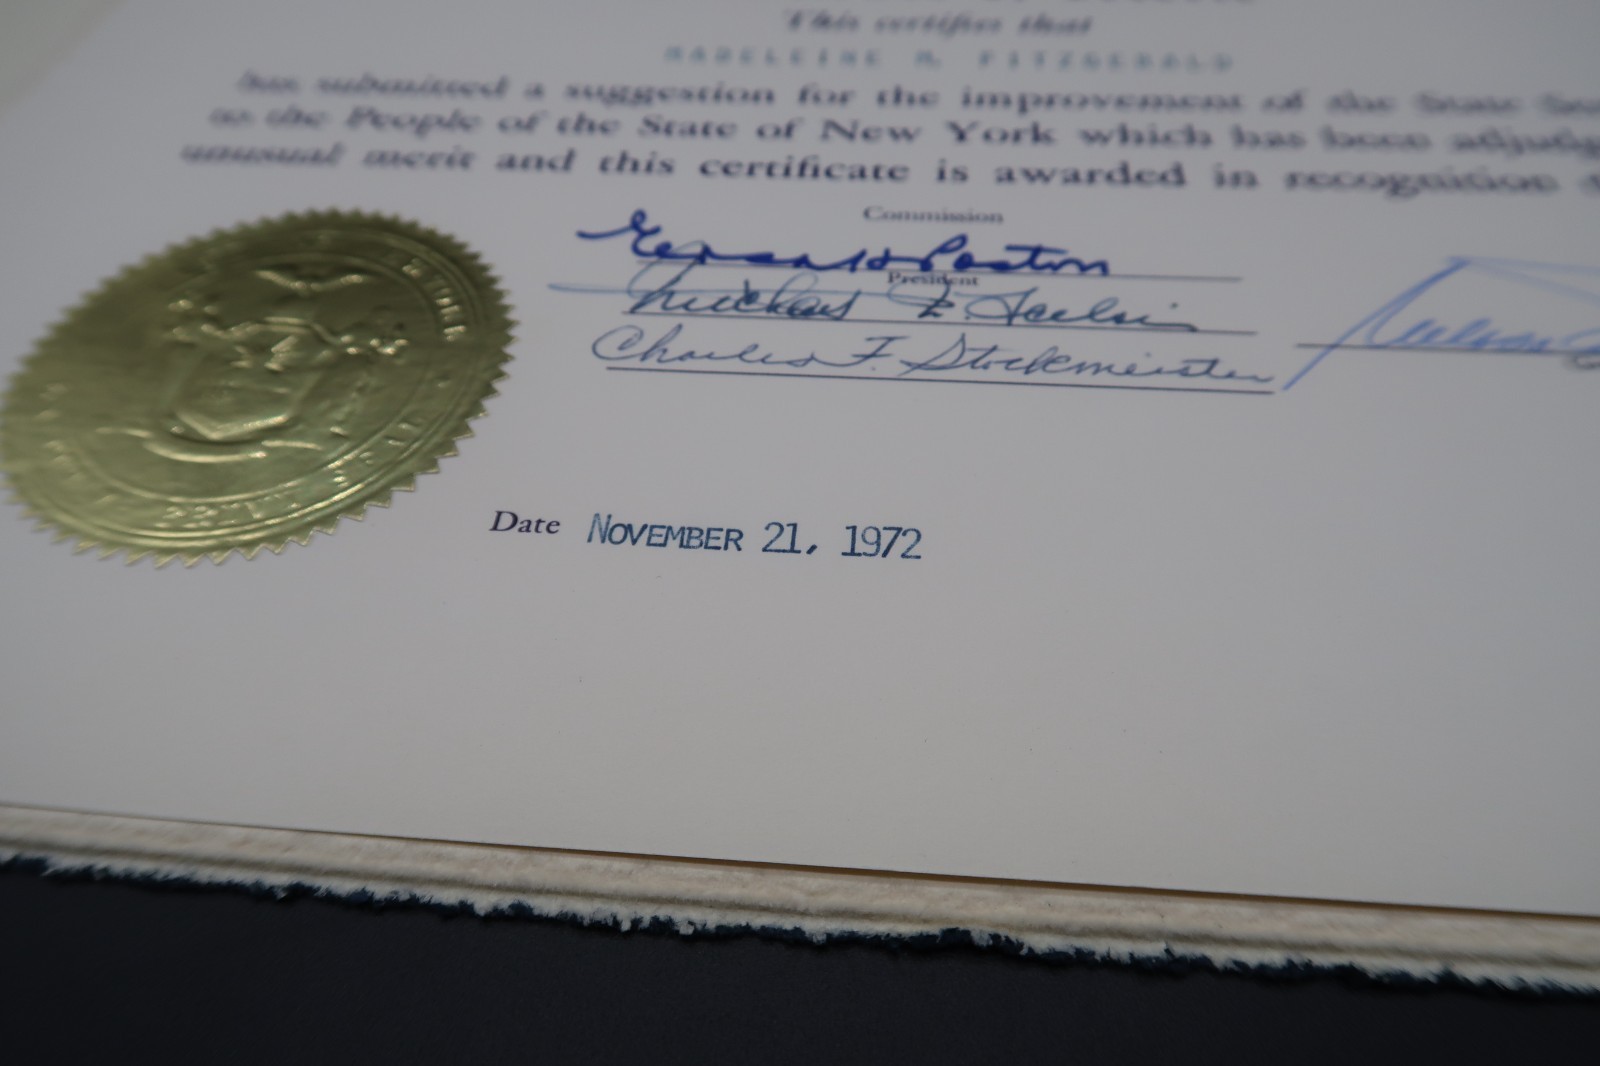 This certifies that
MADELEINE M. FITZGERALD
has submitted a suggestion for the improvement of the State
to the People of the State of New York which has been
unusual merit and this certificate is awarded in recognition
Commission
President
Charles F. Stockmeister
Date NOVEMBER 21, 1972